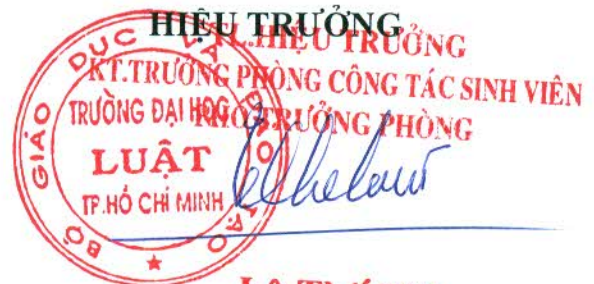 HIỆU TRƯỞNG
TL.HIỆU TRƯỞNG
KT.TRƯỞNG PHÒNG CÔNG TÁC SINH VIÊN
PHÓ TRƯỞNG PHÒNG
BỘ GIÁO DỤC VÀ ĐÀO TẠO
TRƯỜNG ĐẠI HỌC
LUẬT
TP.HỒ CHÍ MINH